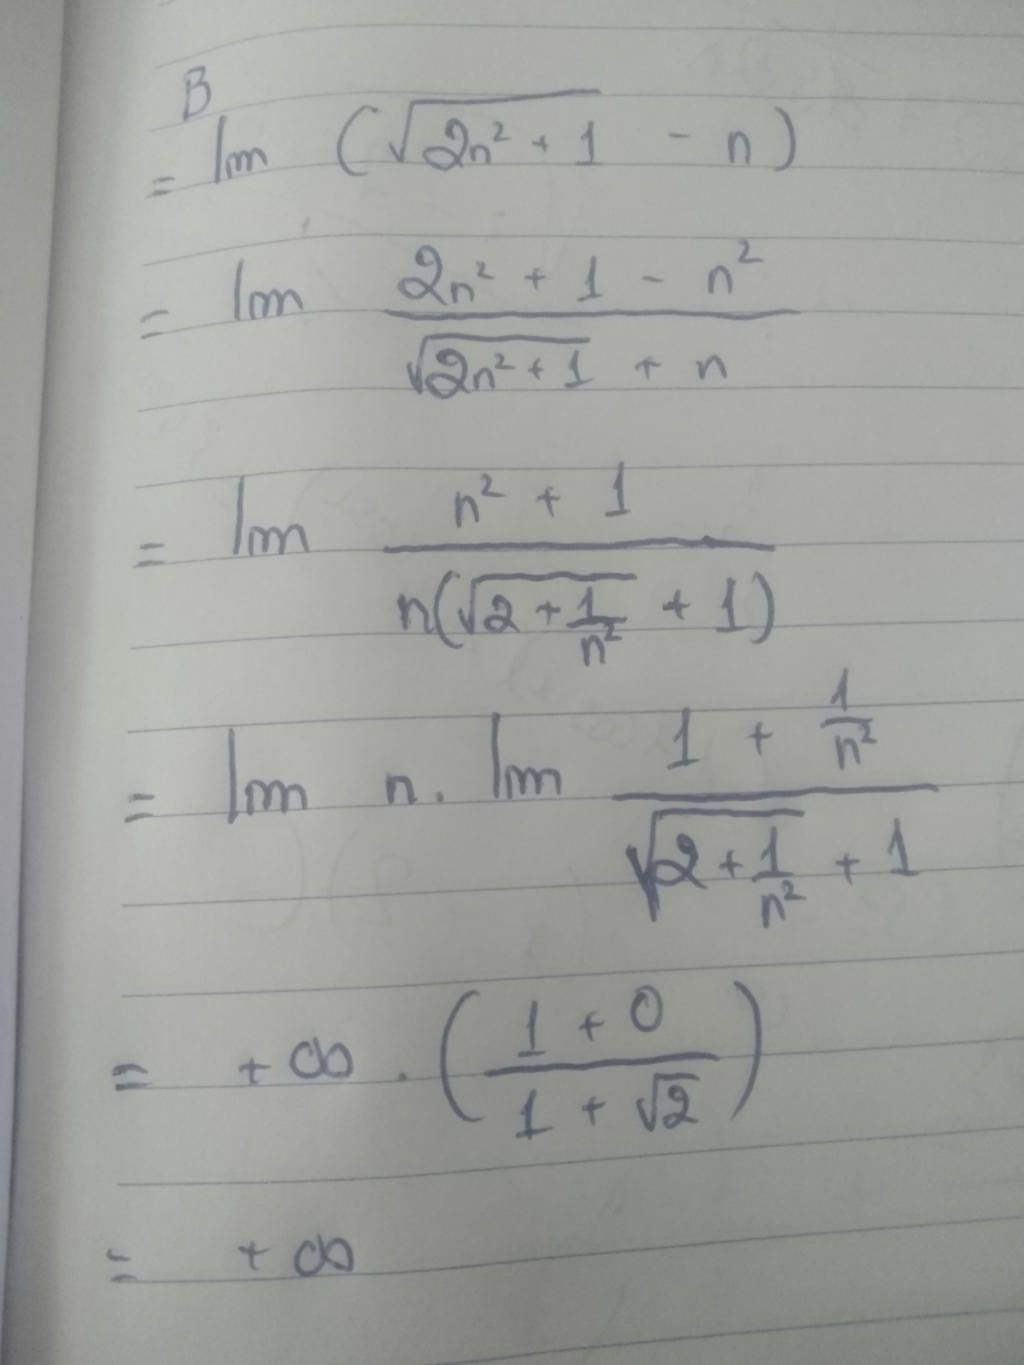 B
= lim (√(2n² + 1) - n)
= lim (2n² + 1 - n²) / (√(2n² + 1) + n)
= lim (n² + 1) / (n(√(2 + 1/n²) + 1))
= lim n . lim (1 + 1/n²) / (√(2 + 1/n²) + 1)
= +∞ . ((1 + 0) / (1 + √2))
= +∞